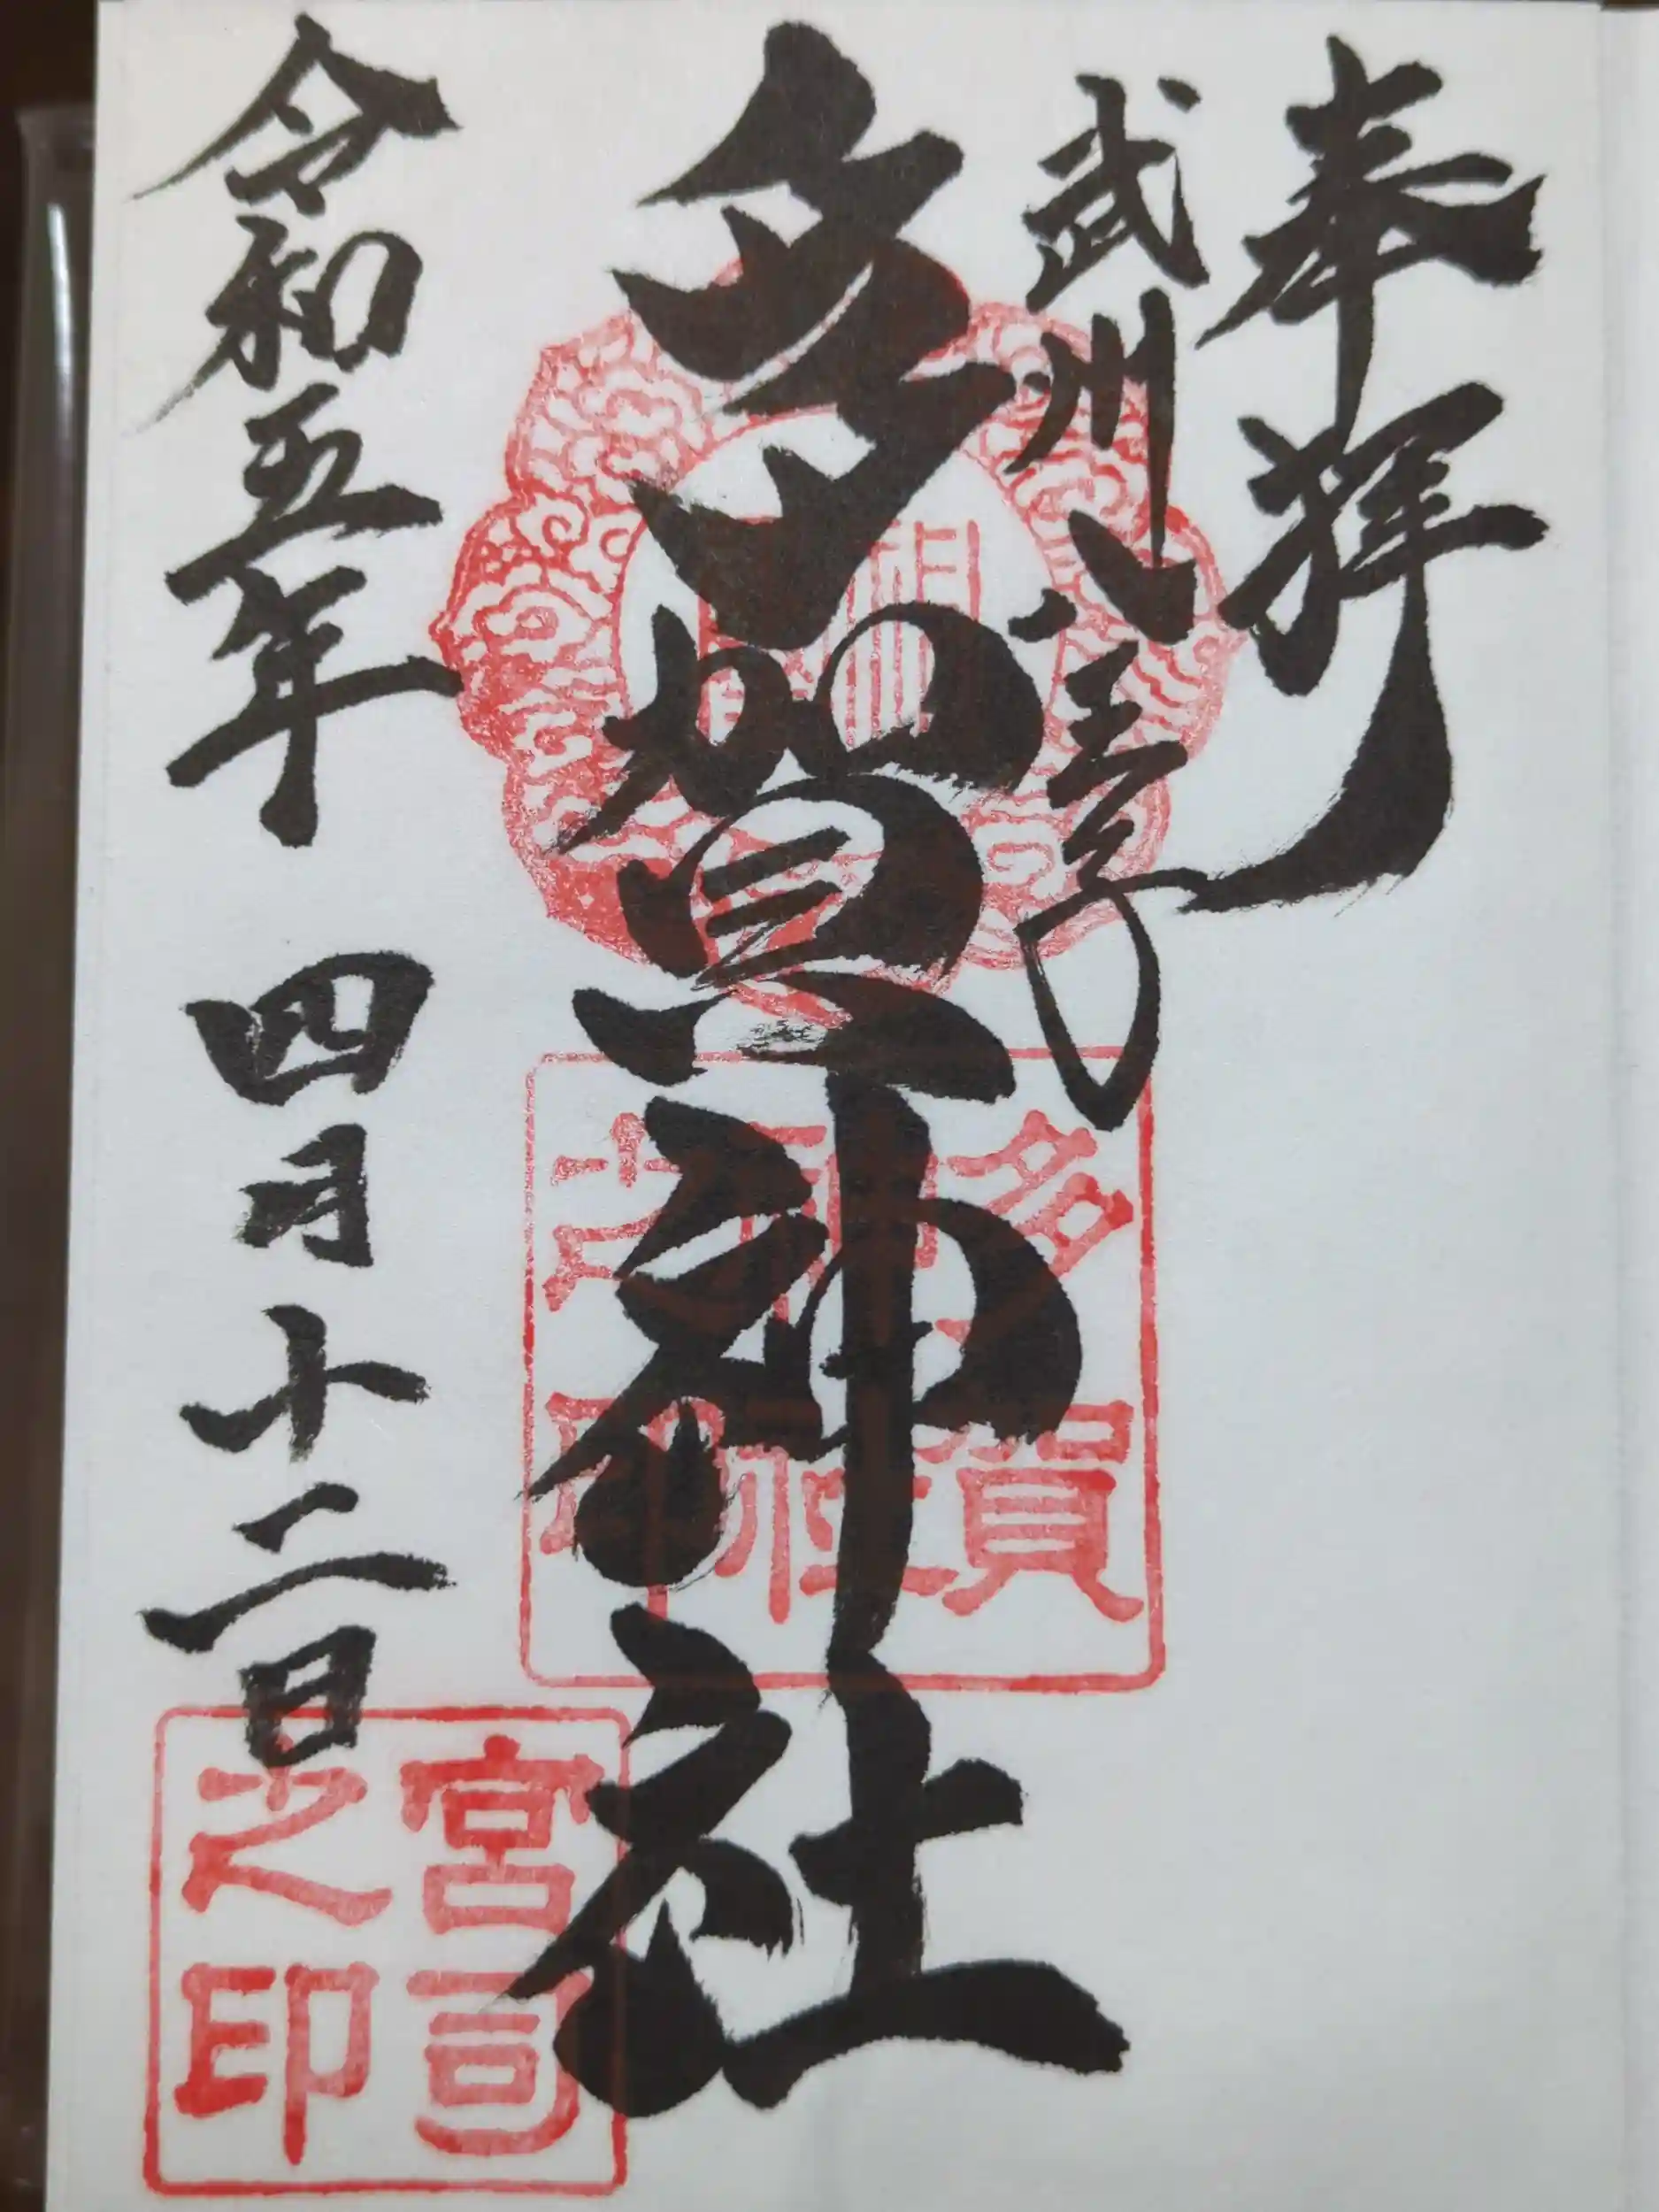 奉拝
武州八王子
多賀神社
令和五年 四月十二日
宮司
之印